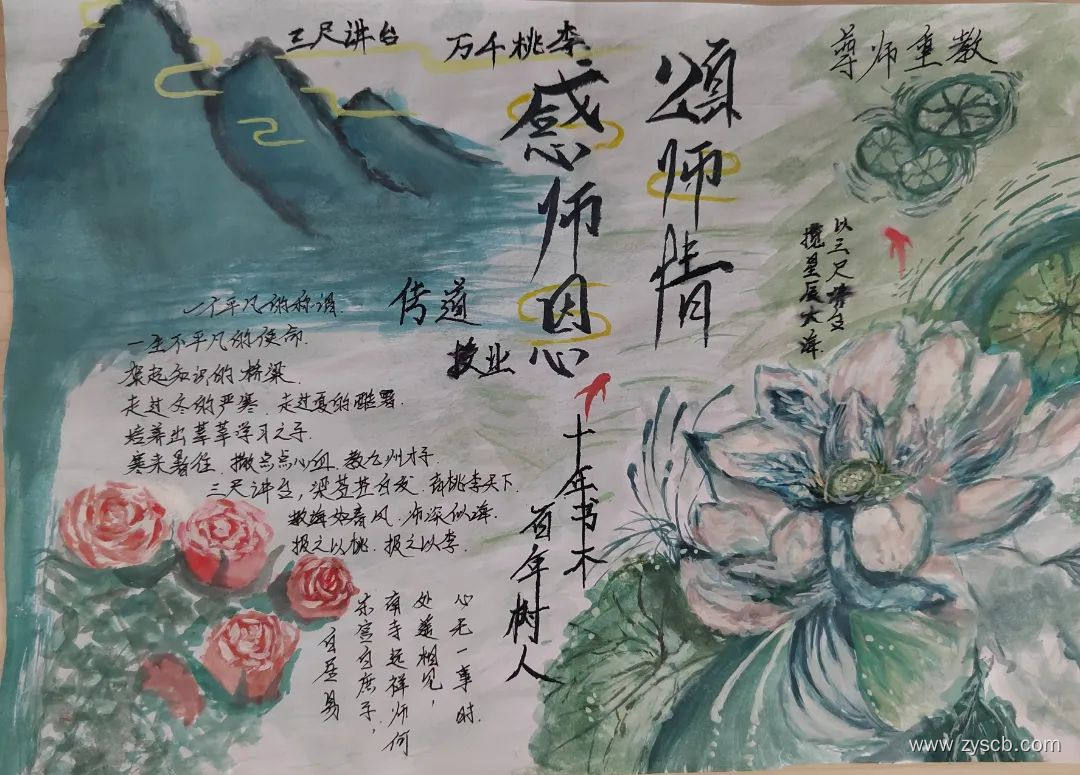 三尺讲台 万千桃李
尊师重教
颂师情
感师恩
传道
授业
以三尺讲台
揽星辰大海
一不平凡的称谓.
一生不平凡的使命.
架起知识的桥梁.
走过冬的严寒.走过夏的酷暑.
培养出莘莘学习之子.
寒来暑往.撒点点心血.教九州才子.
三尺讲台,染苍苍白发.育桃李天下.
教诲如春风.师深似海.
报之以桃.报之以李.
十年书木
百年树人
心无一事时.
处遂相见,
南寺远祥师何
东宫白庶子,
白居易
www.zyscb.com